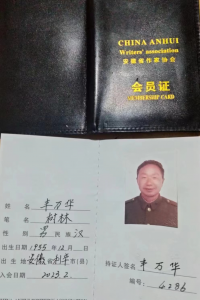 CHINA ANHUI
Writers' association
安徽省作家协会
会员证
MEMBERSHIP CARD
姓 名 丰万华
笔 名 树林
性 别 男 民 族 汉
出生日期 1955年12月 日
出 生 地 安徽省利辛市(县)
入会日期 2023.2
持证人签名 丰万华
编号: 4286